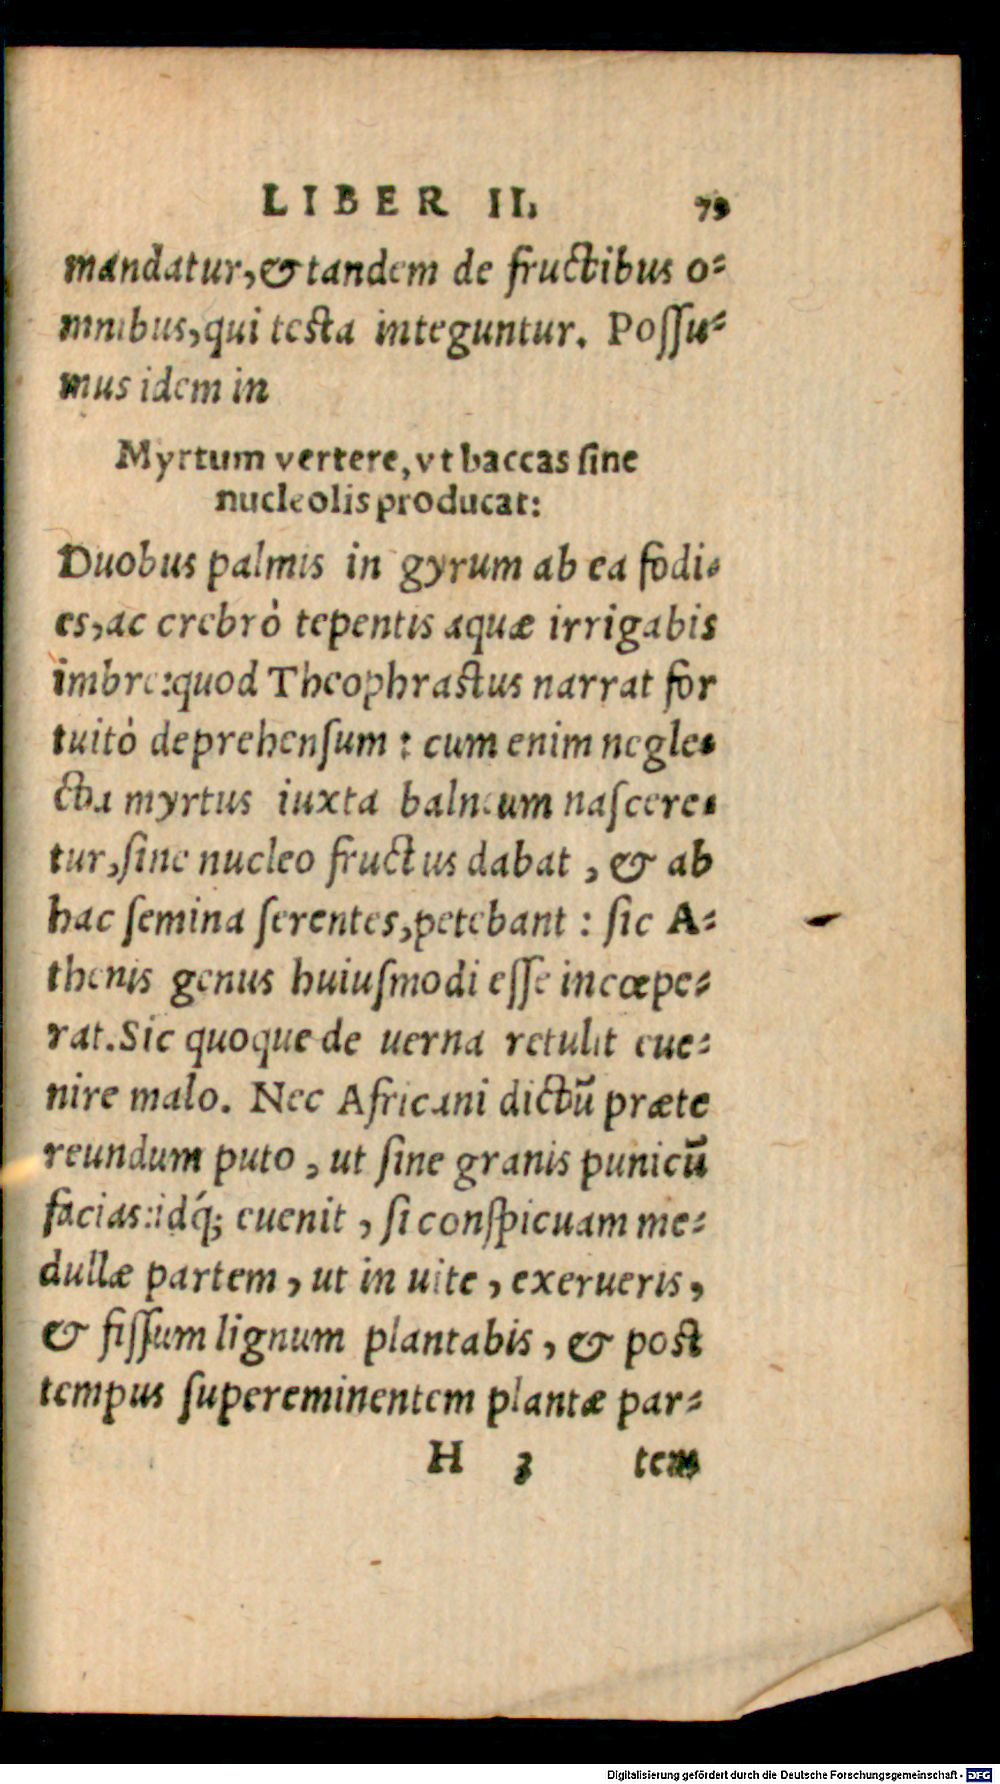 LIBER II. 79
mandatur,& tandem de fructibus o-
mnibus,qui testa integuntur. Possu-
mus idem in
Myrtum vertere, vt baccas sine
nucleolis producat:
Duobus palmis in gyrum ab ea fodi-
es,ac crebrò tepentis aquæ irrigabis
imbre:quod Theophrastus narrat for
tuitò deprehensum : cum enim negle-
cta myrtus iuxta balneum nascere-
tur,sine nucleo fructus dabat , & ab
hac semina serentes,petebant : sic A-
thenis genus huiusmodi esse incœpe-
rat.Sic quoque de uerna retulit eue-
nire malo. Nec Africani dictũ præte
reundum puto , ut sine granis punicũ
facias:idq́; euenit , si conspicuam me-
dullæ partem , ut in uite , exerueris ,
& fissum lignum plantabis , & post
tempus supereminentem plantæ par-
H 3 tem
Digitalisierung gefördert durch die Deutsche Forschungsgemeinschaft - DFG